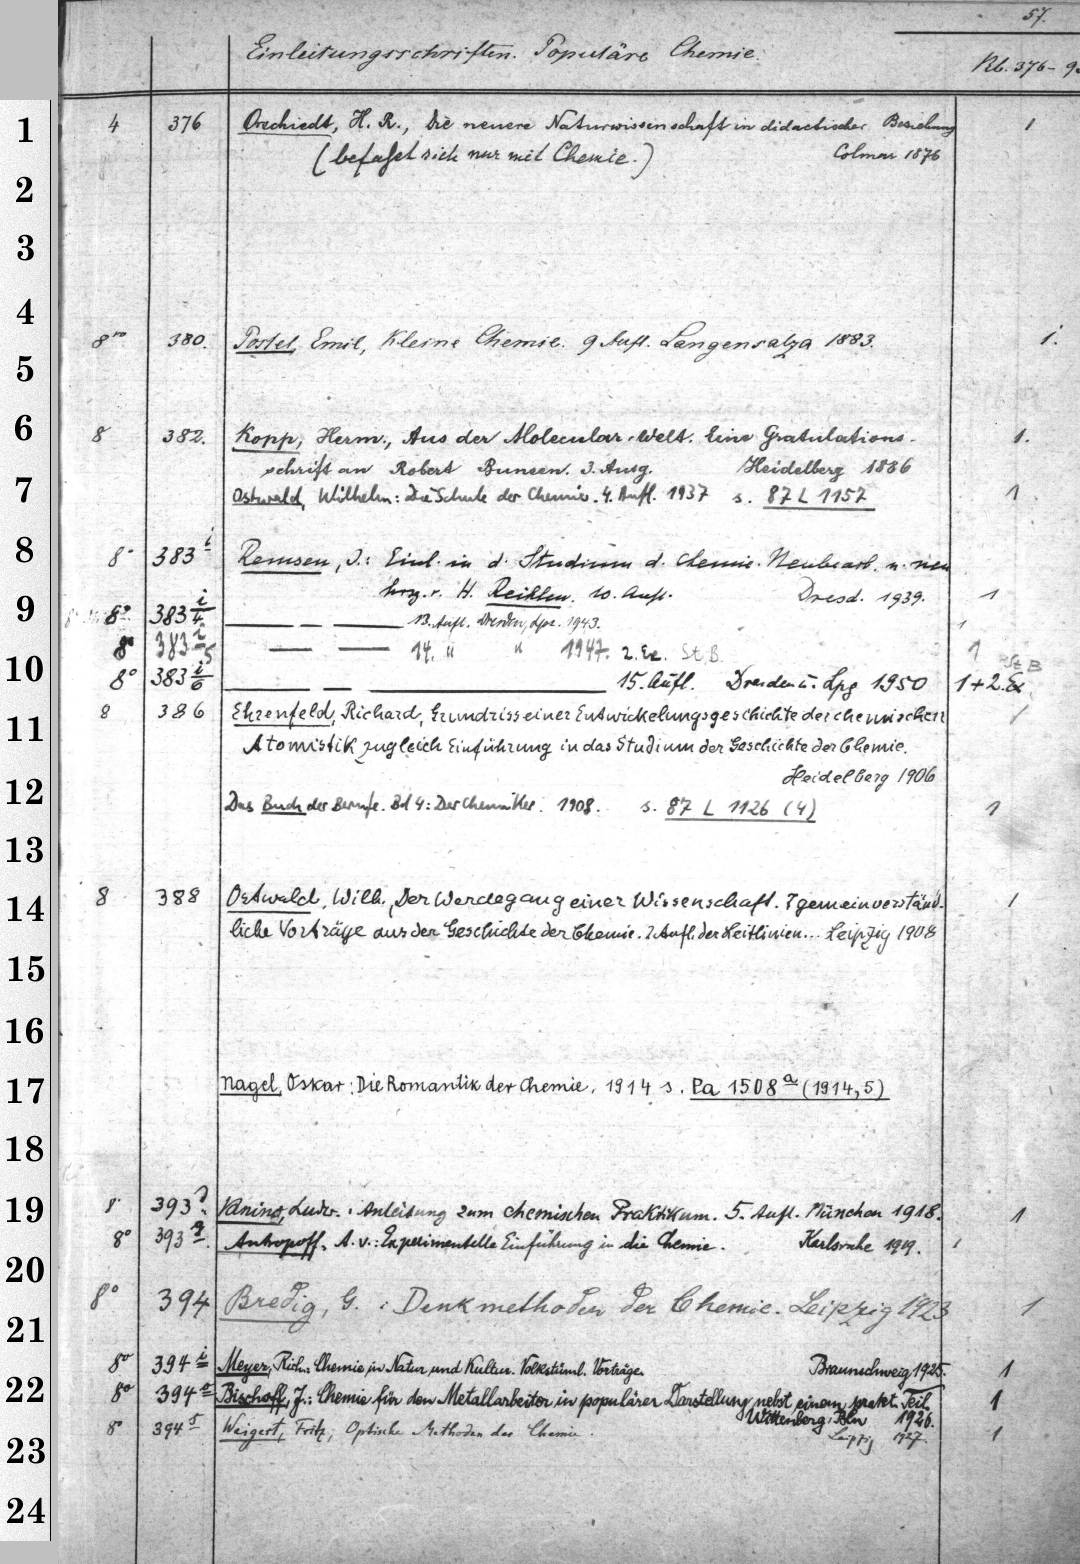 57.
Einleitungsschriften. Populäre Chemie.
Nb. 376-
1 4 376 Orschiedt, H. R., Die neuere Naturwissenschaft in didactischer Beziehung 1
(befaßt sich nur mit Chemie.) Colmar 1876
2
3
4
8vo 380. Postel, Emil, Kleine Chemie. 9 Aufl. Langensalza 1883. 1.
5
6 8 382. Kopp, Herm., Aus der Molecular-Welt. Eine Gratulations- 1.
schrift an Robert Bunsen. 3. Ausg. Heidelberg 1886
7 Ostwald, Wilhelm: Die Schule der Chemie. 4. Aufl. 1937 s. 87 L 1157 1
8 8° 383 i Remsen, J.: Einl. in d. Studium d. Chemie. Neubearb. u. neu
hrsg. v. H. Reihlen. 10. Aufl. Dresd. 1939. 1
9 8° 383 i/4 — — — 13. Aufl. Dresden, Lpz. 1943. 1
8° 383 i/5 — — 14. " " 1947. 2. Ex. St.B. 1
10 8° 383 i/6 — — — 15. Aufl. Dresden u. Lpg 1950 1+2.Ex St B
11 8 386 Ehrenfeld, Richard, Grundriss einer Entwickelungsgeschichte der chemischen 1
Atomistik zugleich Einführung in das Studium der Geschichte der Chemie.
Heidelberg 1906
12 Das Buch der Berufe. Bd 4: Der Chemiker. 1908. s. 87 L 1126 (4) 1
13
14 8 388 Ostwald, Wilh., Der Werdegang einer Wissenschaft. 7 gemeinverständ- 1
liche Vorträge aus der Geschichte der Chemie. 2 Aufl. der Leitlinien... Leipzig 1908
15
16
17 Nagel, Oskar: Die Romantik der Chemie. 1914 s. Pa 1508 a (1914,5)
18
19 8° 393 Vanino, Ludw.: Anleitung zum chemischen Praktikum. 5. Aufl. München 1918. 1
8° 393 Antropoff, A. v.: Experimentelle Einführung in die Chemie. Karlsruhe 1919. 1
20
8° 394 Bredig, G.: Denkmethoden der Chemie. Leipzig 1923 1
21
8° 394 i Meyer, Rich.: Chemie in Natur und Kultur. Volkstüml. Vorträge. Braunschweig 1925. 1
22 8° 394 o Bischoff, J.: Chemie für den Metallarbeiter in populärer Darstellung nebst einem prakt. Teil. 1
Wittenberg, Bln 1926.
8° 394 s Weigert, Fritz, Optische Methoden der Chemie. Leipzig 1927. 1
23
24